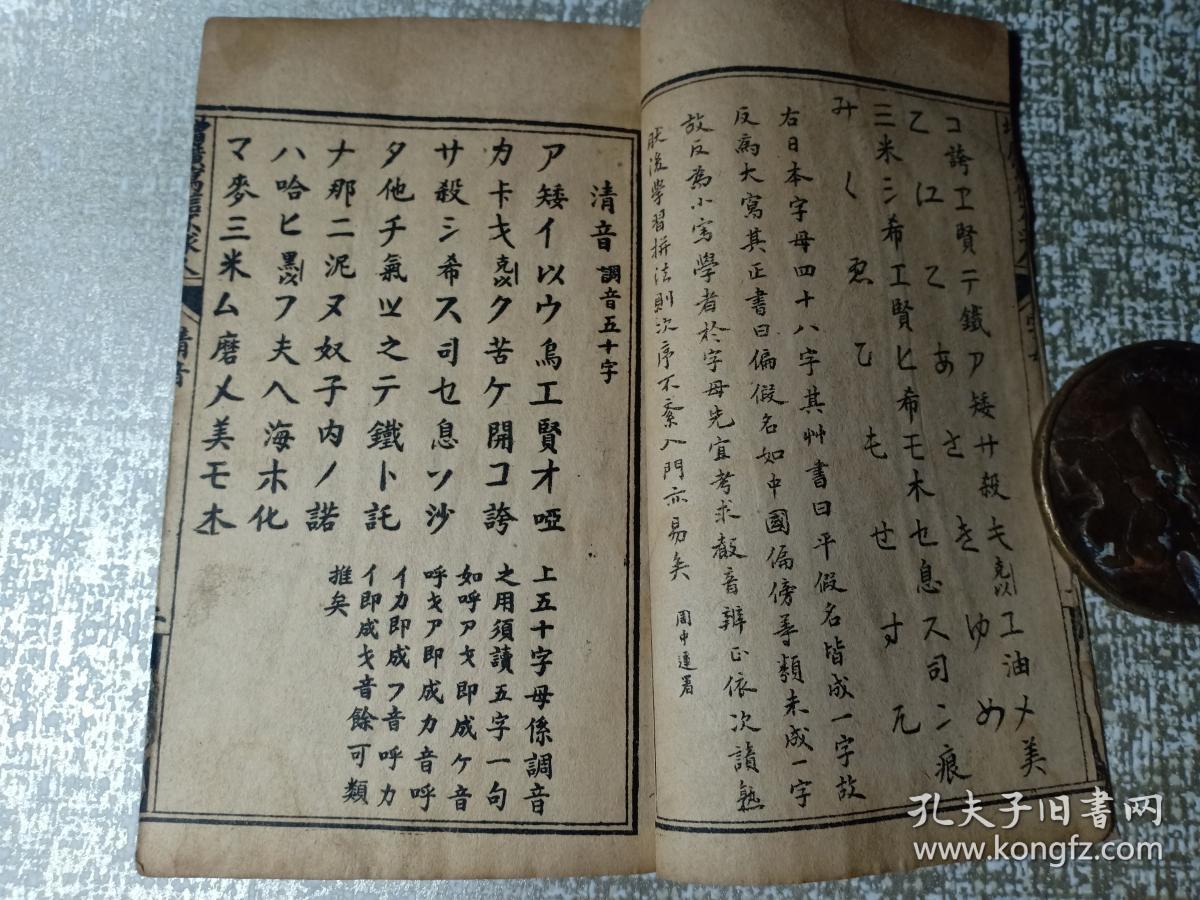 コ誇ヱ賢テ鐵ア矮サ殺キ克以ユ油メ美
こ江てあさきゆめ
三米シ希エ賢ヒ希モ木セ息ス司ン痕
みしゑひもせすん
右日本字母四十八字其艸書曰平假名皆成一字故
反爲大寫其正書曰偏假名如中國偏傍等類未成一字
故反爲小寫學者於字母先宜考求音辨正依次讀熟
然後學習拼法則次序不紊入門亦易矣 周申運署
清音 調音五十字
ア矮イ以ウ烏エ賢オ啞
カ卡キ克以ク苦ケ開コ誇
サ殺シ希ス司セ息ソ沙
タ他チ氣ツ之テ鐵ト託
ナ那ニ泥ヌ奴子内ノ諾
ハ哈ヒ黑以フ夫ヘ海ホ化
マ麥三米ム磨メ美モ木
上五十字母係調音
之用須讀五字一句
如呼アキ即成ケ音
呼キア即成カ音呼
イカ即成フ音呼カ
イ即成キ音餘可類
推矣
清音
孔夫子旧書网
www.kongfz.com